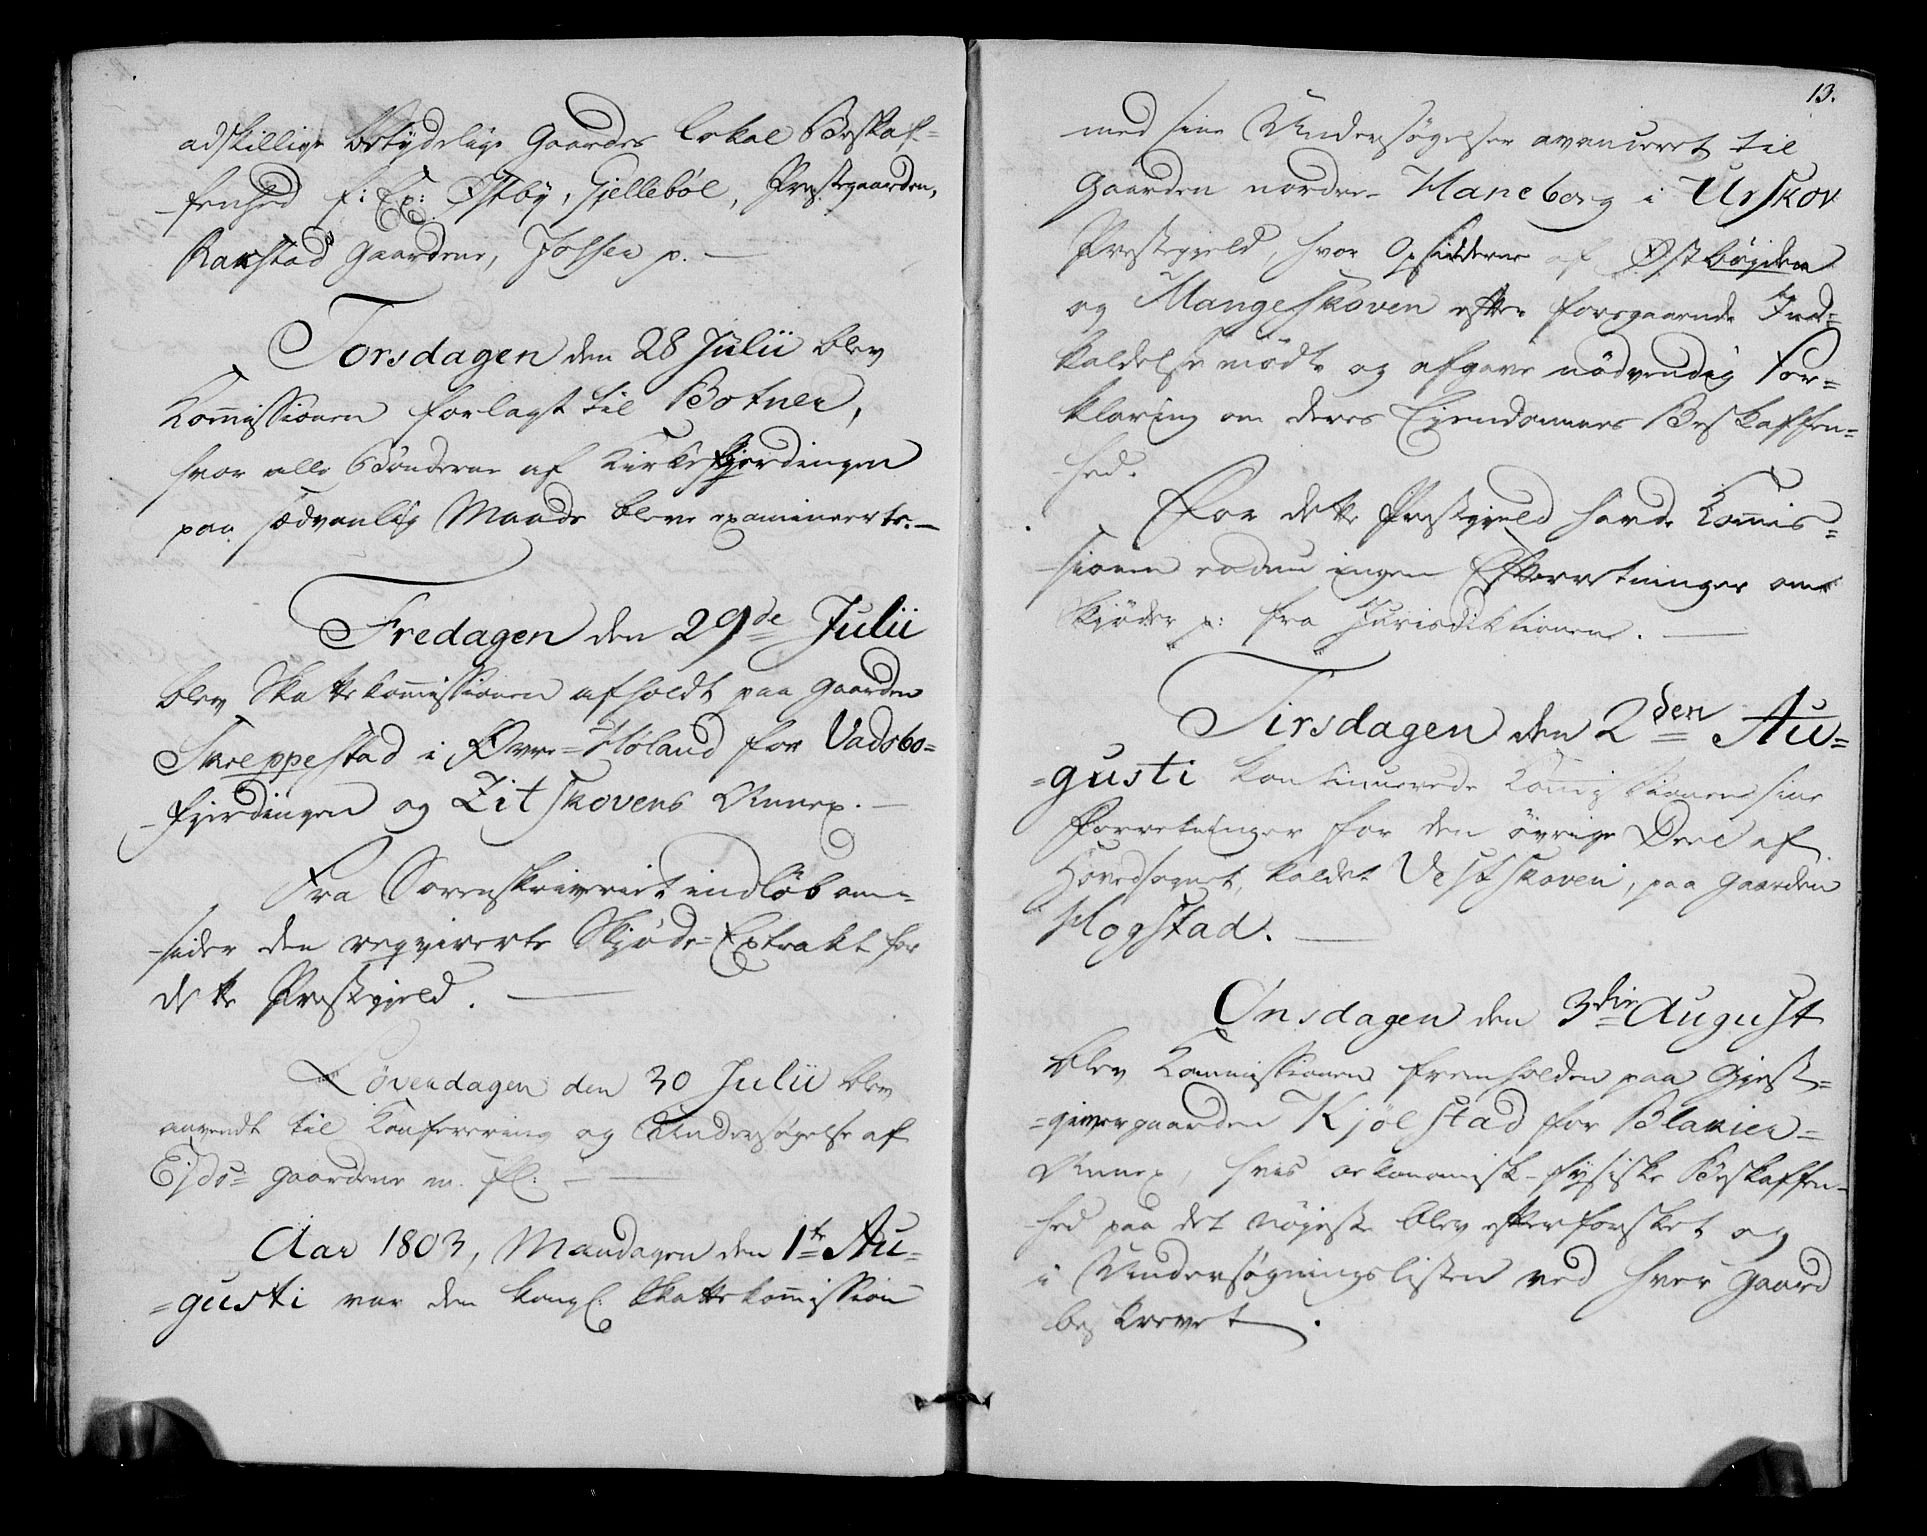 adskillige betydelige Gaardes lokal Beskaf=
fenhed f: Ex: Østby, Gjellebøl, Præstegaarden,
Rakstad Gaardene, Fosser p. —
Torsdagen den 28 Julii blev
Kom̄issionen forlagt til Botner,
hvor alle Bønderne af Kirkefjerdingen
paa sædvanlig Maade bleve examineerte. —
Fredagen den 29de Julii
blev Skattekom̄issionen afholdt paa Gaarden
Skreppestad i Øvre=Høland for Vadsbo=
fjerdingen og Zitskovens Annex. —
Fra Sorenskriveriet indløb om=
sider den reqvirerte Skjøde=Extrakt for
dette Præstegjeld. —
Løverdagen den 30 Julii blev
anvendt til Konferering og Undersøgelse af
Ejds= Gaardene m. fl: —
Aar 1803, Mandagen den 1te Au=
=gusti var den kongl: Skattekom̄ission
13.
med sine Undersøgelser avanceret til
Gaarden nordre Haneborg i Urskov
Præstegjeld, hvor Opsidderne af Østbøjden
og Mangeskoven efter foregaaende Ind=
kaldelse mødte og afgave nødvendig For=
klaring om deres Ejendommes Beskaffen=
hed.
For dette Præstegjeld havde Kom̄is=
sionen endnu ingen Efterretninger om
Skjøder p: fra Jurisdiktionen. —
Tirsdagen den 2den Au=
=gusti kontinuerede Kom̄issionen sine
Forretninger for den øvrige Deel af
Hovedsognet, kaldet Vestskoven, paa Gaarden
Hogstad. —
Onsdagen den 3die August
blev Kommissionen fremholden paa Gjest=
=givergaarden Kjølstad for Blakier=
Annex, hvis oekonomisk-fysiske Beskaffen=
hed paa det nøjeste blev efterforsket og
i Undersøgningslisten ved hver Gaard
beskrevet.